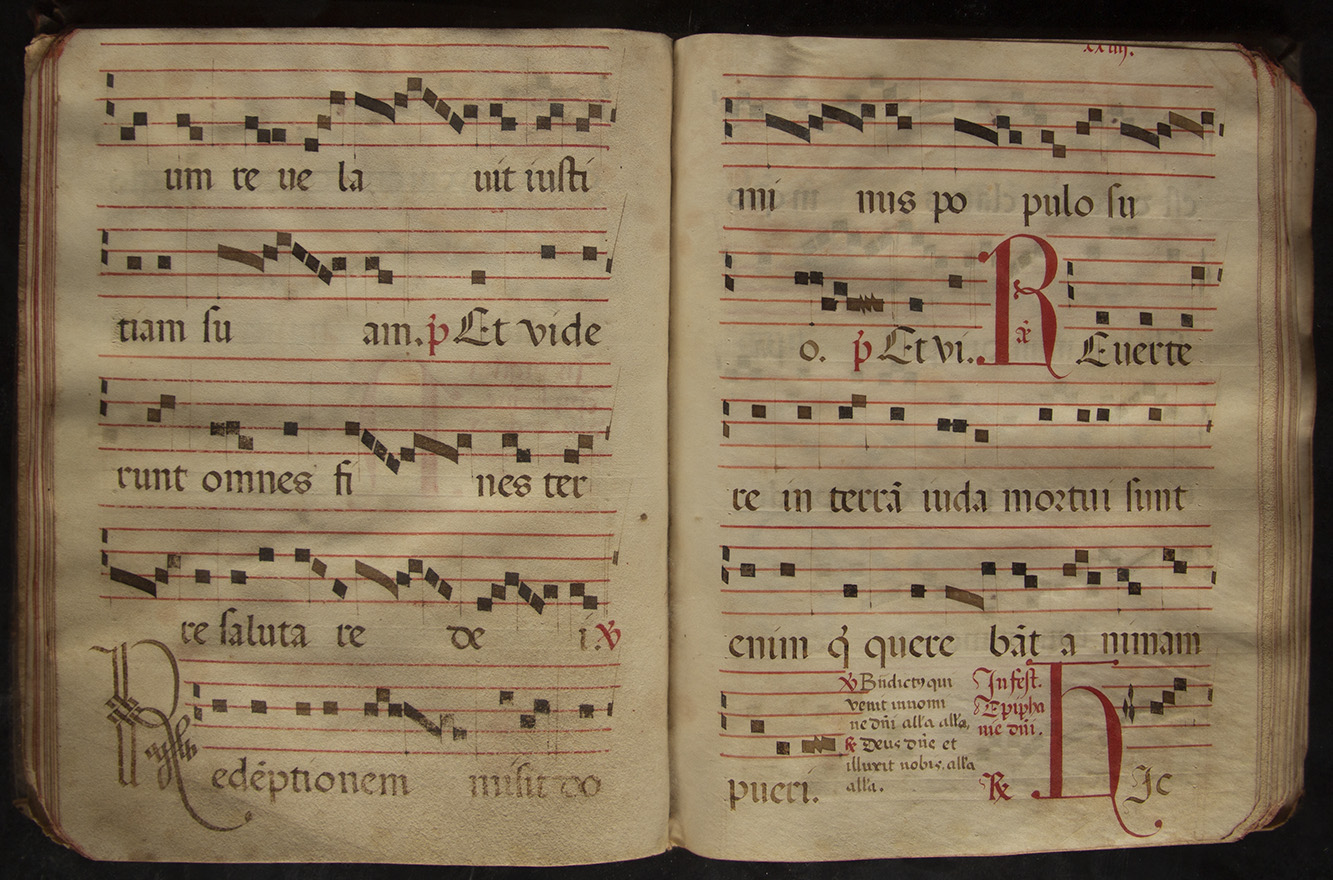 um re ue la uit iusti
tiam su am. p Et vide
runt omnes fi nes ter
re saluta re de i. v
Redēptionem misit do
xxiiij.
mi nus po pulo su
o. p Et vi. R ā Euerte
re in terrā iuda mortui sunt
enim q̄ quere bāt a nimam
pueri.
v Bn̄dictꝰ qui
venit in nomi
ne dn̄i all'a all'a,
℟ Deus dn̄s et
illuxit nobis. all'a
all'a.
In fest.
Epipha
nie dn̄i.
℟ H Ic